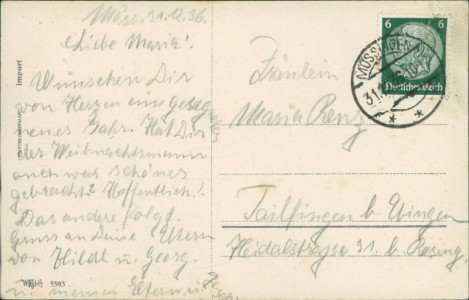 Möss. 31.12.36.
Liebe Maria!
Wünschen Dir
von Herzen ein geseg
netes Jahr. Hat Dir
der Weihnachtsmann
auch was schönes
gebracht? Hoffentlich!
Das andere folgt.
Gruss an Deine Eltern
von Hilde u. Georg.
u. meinen Eltern u.
Import
W.R.B.
5503
6 6
Deutsches Reich
MÖSSINGEN
31.
Fräulein
Maria Renz
Tailfingen b. Ebingen
Heidalstrasse 31. b.